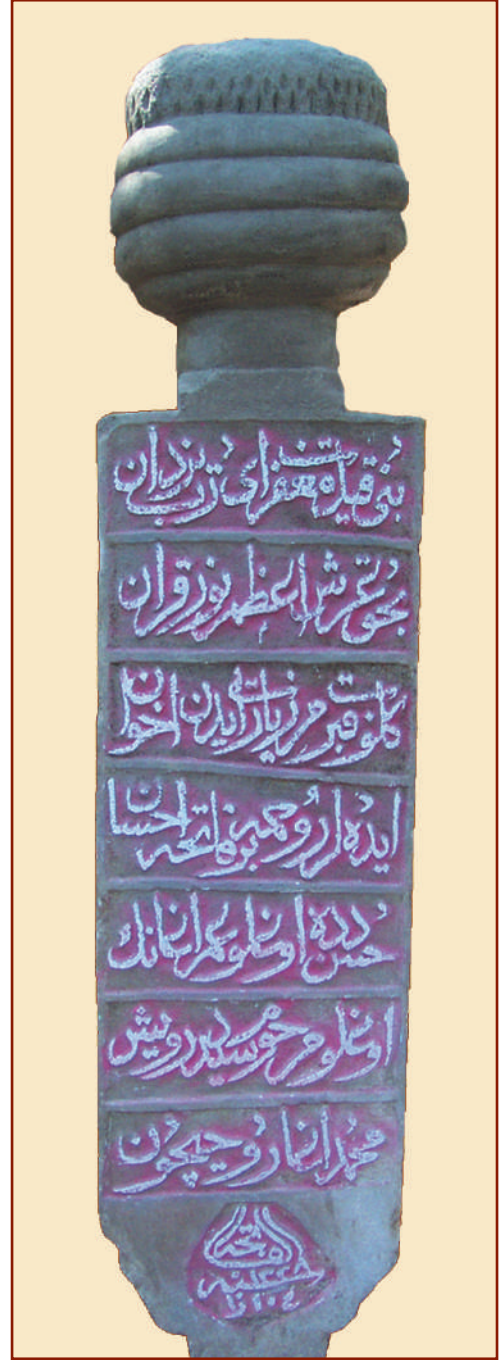 بنى قيل مغفرت اى رب يزدان
بحق عرش الاعظم نور قران
كلوب قبرم زيارت ايدن اخوان
ايده لر روحمه بر فاتحه احسان
حسن دده اوغلو
اوغلو مرحوم سيد درويش
محمد اغا روحيچون
فاتحه
سنه ١١٠٤